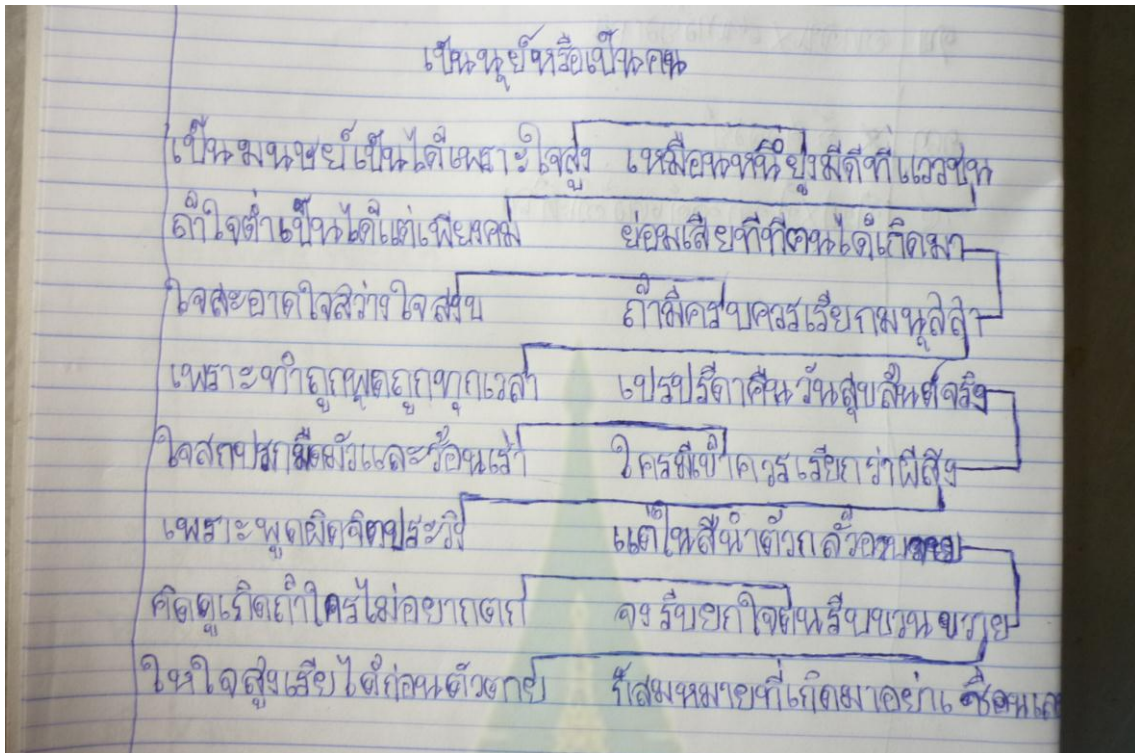 เป็นนุย์หรือเป็นคน
เป็นมนษย์เป็นได้เพราะใจสูง เหมือนหนึ่ยูงมีดีที่แววชน
ถ้าใจต่ำเป็นได้แต่เพียงคน ย่อมเสียทีที่ตนได้เกิดมา
ใจสะอาดใจสว่างใจสงบ ถ้ามีครบควรเรียกมนุสสา
เพราะทำถูกพูดถูกทุกเวลา เปรปรีดาคืนวันสุขสันต์จริง
ใจสกปรกมืดมัวและร้อนเร่า ใครมีเข้าควรเรียกว่าผีสิง
เพราะพูดผิดจิตประวิง แต่ในสิ่นำตัวกลั้ว
คิดดูเถิดถ้าใครไม่อยากตก จงรีบยกใจตนรีบขวนขวาย
ให้ใจสูงเสียได้ก่อนตัวตาย ก็สมหมายที่เกิดมาอย่าเชือน